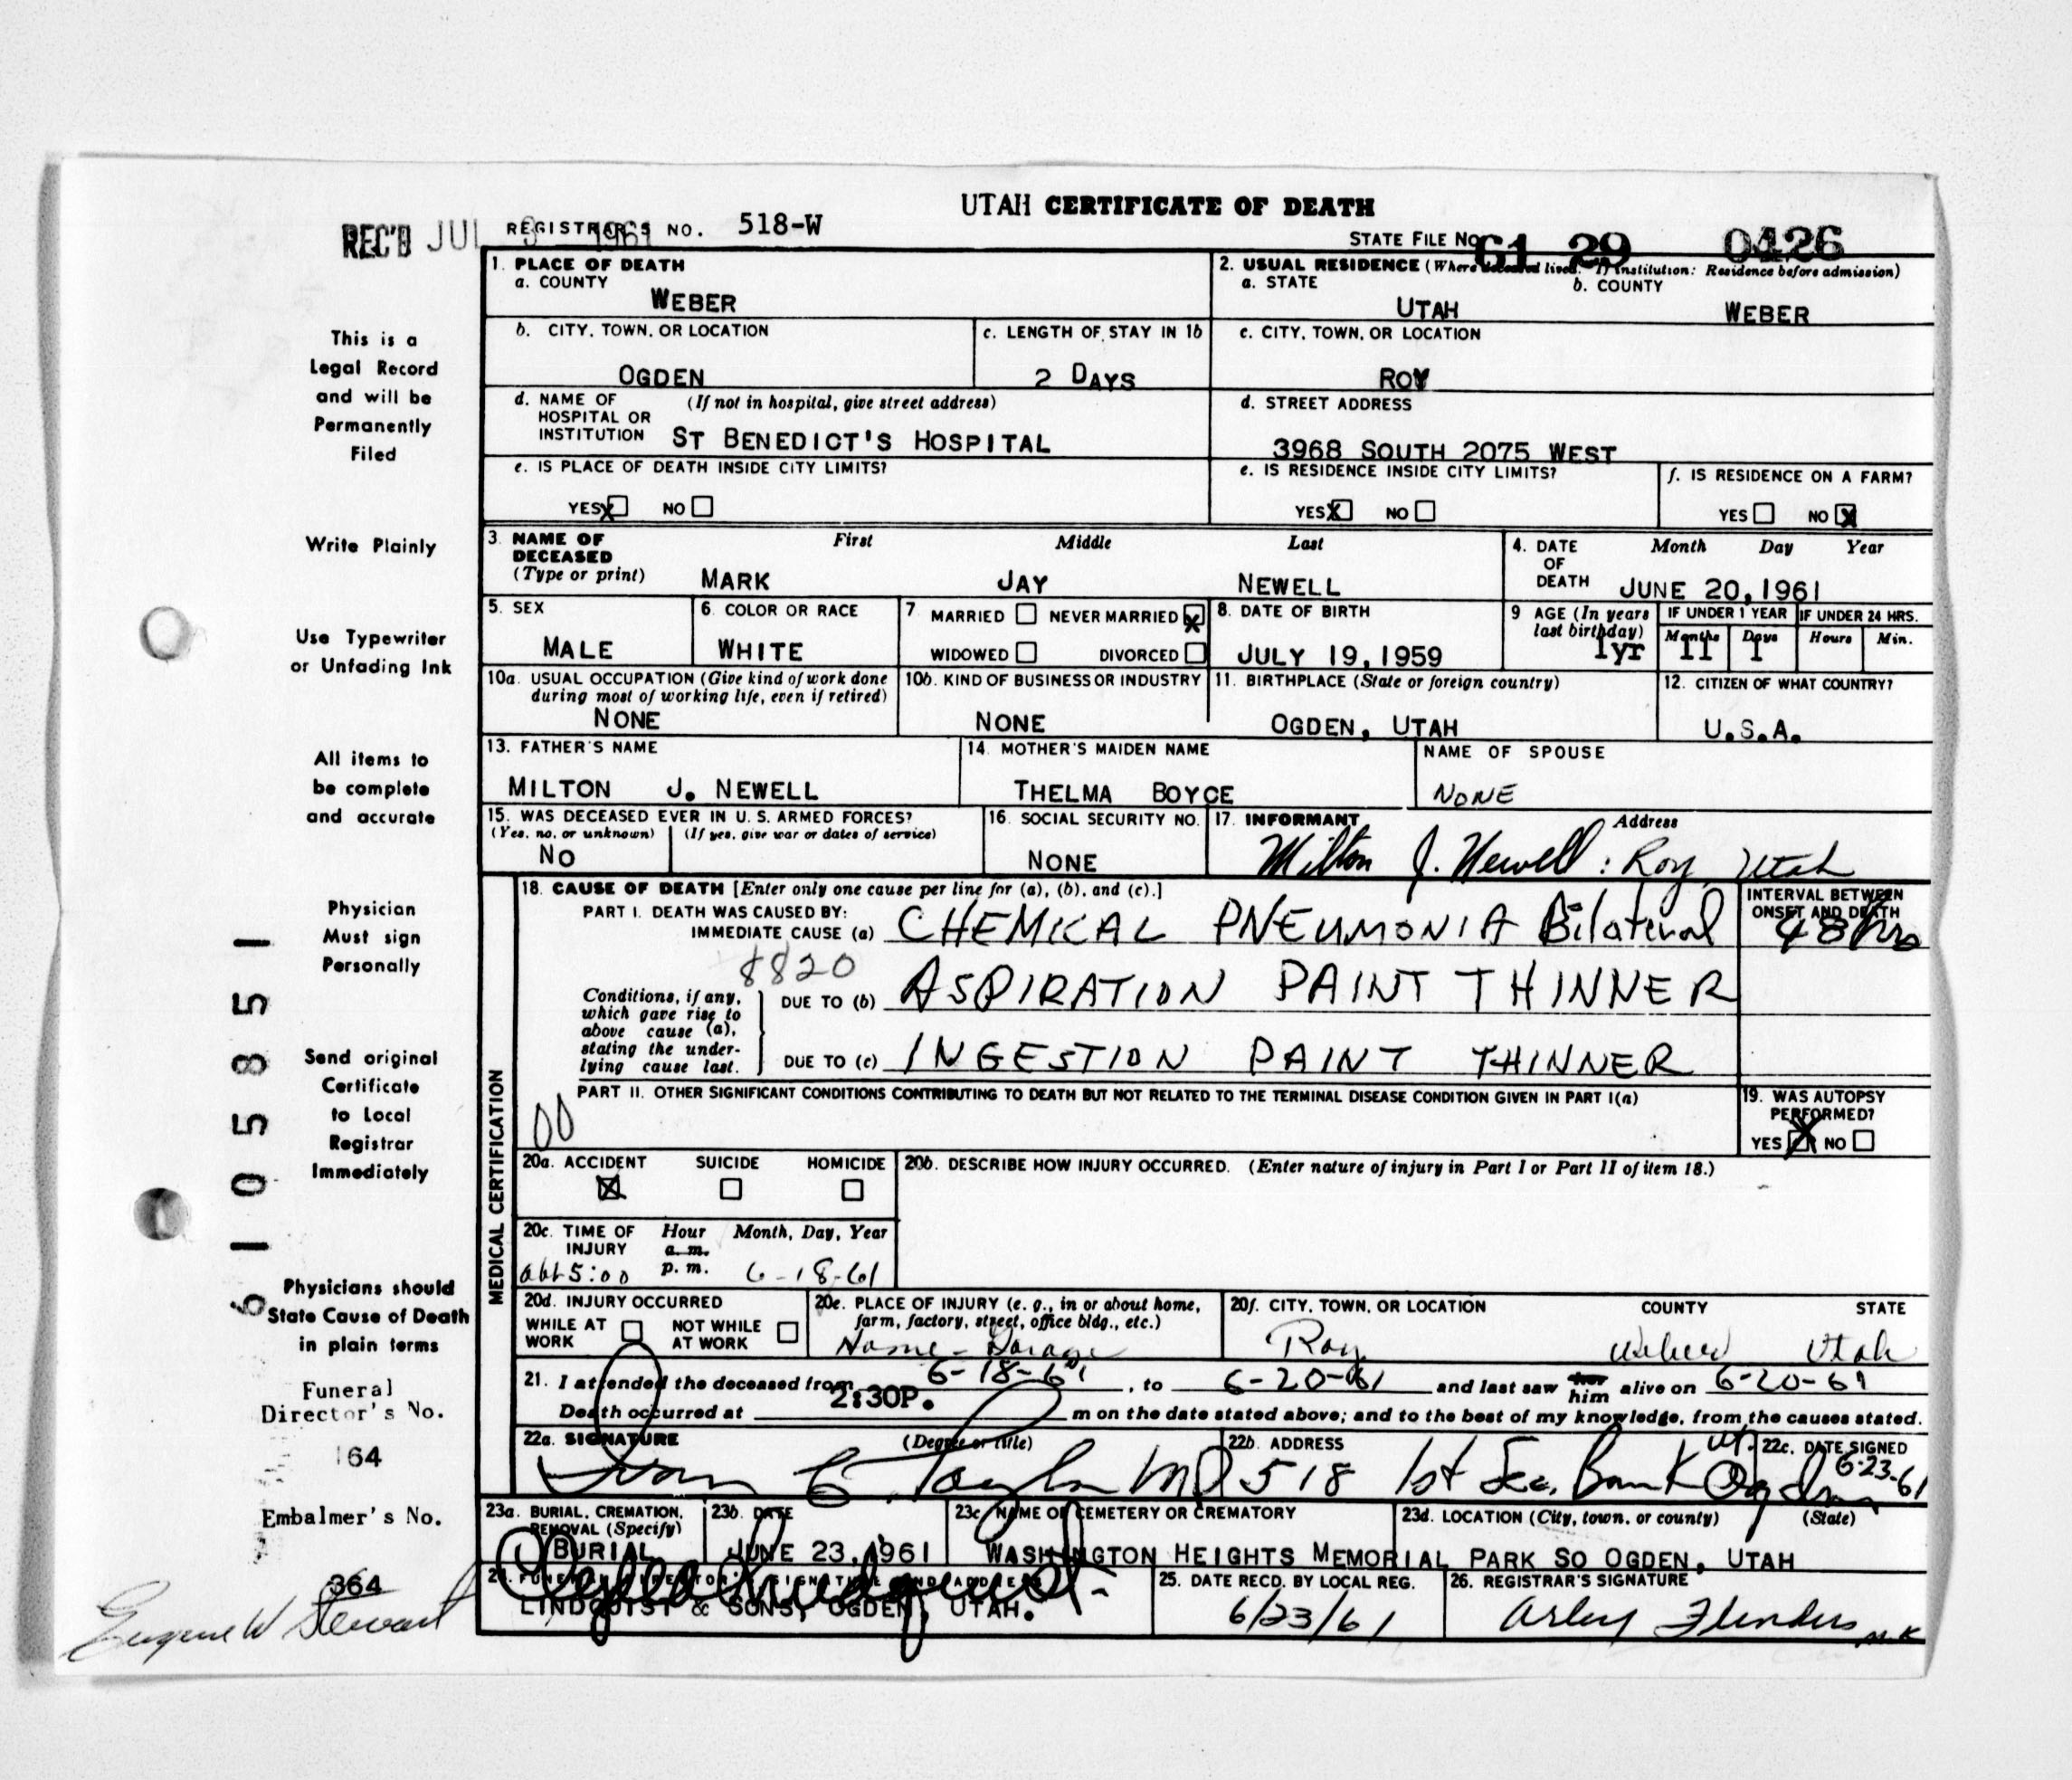 UTAH CERTIFICATE OF DEATH
REC'D JUL 3 1961 REGISTRAR'S NO. 518-W
STATE FILE NO. 61 29 0426
1. PLACE OF DEATH
a. COUNTY
WEBER
2. USUAL RESIDENCE (Where deceased lived. If institution: Residence before admission)
a. STATE b. COUNTY
UTAH WEBER
b. CITY, TOWN, OR LOCATION c. LENGTH OF STAY IN 1b
OGDEN 2 DAYS
c. CITY, TOWN, OR LOCATION
ROY
d. NAME OF HOSPITAL OR INSTITUTION (If not in hospital, give street address)
ST BENEDICT'S HOSPITAL
d. STREET ADDRESS
3968 SOUTH 2075 WEST
e. IS PLACE OF DEATH INSIDE CITY LIMITS?
YES X NO
e. IS RESIDENCE INSIDE CITY LIMITS?
YES X NO
f. IS RESIDENCE ON A FARM?
YES NO X
3. NAME OF DECEASED (Type or print) First Middle Last
MARK JAY NEWELL
4. DATE OF DEATH Month Day Year
JUNE 20, 1961
5. SEX
MALE
6. COLOR OR RACE
WHITE
7. MARRIED NEVER MARRIED X
WIDOWED DIVORCED
8. DATE OF BIRTH
JULY 19, 1959
9 AGE (In years last birthday)
1yr
IF UNDER 1 YEAR IF UNDER 24 HRS.
Months Days Hours Min.
11 1
10a. USUAL OCCUPATION (Give kind of work done during most of working life, even if retired)
NONE
10b. KIND OF BUSINESS OR INDUSTRY
NONE
11. BIRTHPLACE (State or foreign country)
OGDEN, UTAH
12. CITIZEN OF WHAT COUNTRY?
U.S.A.
13. FATHER'S NAME
MILTON J. NEWELL
14. MOTHER'S MAIDEN NAME
THELMA BOYCE
NAME OF SPOUSE
NONE
15. WAS DECEASED EVER IN U. S. ARMED FORCES?
(Yes, no, or unknown) (If yes, give war or dates of service)
NO
16. SOCIAL SECURITY NO.
NONE
17. INFORMANT Address
Milton J. Newell : Roy, Utah
MEDICAL CERTIFICATION
18. CAUSE OF DEATH [Enter only one cause per line for (a), (b), and (c).]
INTERVAL BETWEEN ONSET AND DEATH
PART I. DEATH WAS CAUSED BY:
IMMEDIATE CAUSE (a) CHEMICAL PNEUMONIA Bilateral 48 hrs
8820
Conditions, if any, which gave rise to above cause (a), stating the underlying cause last.
DUE TO (b) ASPIRATION PAINT THINNER
DUE TO (c) INGESTION PAINT THINNER
PART II. OTHER SIGNIFICANT CONDITIONS CONTRIBUTING TO DEATH BUT NOT RELATED TO THE TERMINAL DISEASE CONDITION GIVEN IN PART I(a)
00
19. WAS AUTOPSY PERFORMED?
YES X NO
20a. ACCIDENT SUICIDE HOMICIDE
X
20b. DESCRIBE HOW INJURY OCCURRED. (Enter nature of injury in Part I or Part II of item 18.)
20c. TIME OF INJURY Hour Month, Day, Year
a.m.
abt 5:00 p. m. 6-18-61
20d. INJURY OCCURRED
WHILE AT WORK NOT WHILE AT WORK
20e. PLACE OF INJURY (e. g., in or about home, farm, factory, street, office bldg., etc.)
Home - Garage
20f. CITY, TOWN, OR LOCATION COUNTY STATE
Roy Weber Utah
21. I attended the deceased from 6-18-61, to 6-20-61 and last saw her him alive on 6-20-61
Death occurred at 2:30P. m on the date stated above; and to the best of my knowledge, from the causes stated.
22a. SIGNATURE (Degree or title)
Taylor MD
22b. ADDRESS
518 1st Sec. Bank Ogden Ut.
22c. DATE SIGNED
6-23-61
23a. BURIAL, CREMATION, REMOVAL (Specify)
BURIAL
23b. DATE
JUNE 23, 1961
23c. NAME OF CEMETERY OR CREMATORY
WASHINGTON HEIGHTS MEMORIAL PARK
23d. LOCATION (City, town, or county) (State)
SO OGDEN, UTAH
24. FUNERAL DIRECTOR'S SIGNATURE AND ADDRESS
LINDQUIST & SONS, OGDEN, UTAH.
25. DATE RECD. BY LOCAL REG.
6/23/61
26. REGISTRAR'S SIGNATURE
Arley Flinders M.K
This is a
Legal Record
and will be
Permanently
Filed
Write Plainly
Use Typewriter
or Unfading Ink
All items to
be complete
and accurate
Physician
Must sign
Personally
Send original
Certificate
to Local
Registrar
Immediately
Physicians should
State Cause of Death
in plain terms
Funeral
Director's No.
164
Embalmer's No.
364
Eugene W Stewart
61 05851